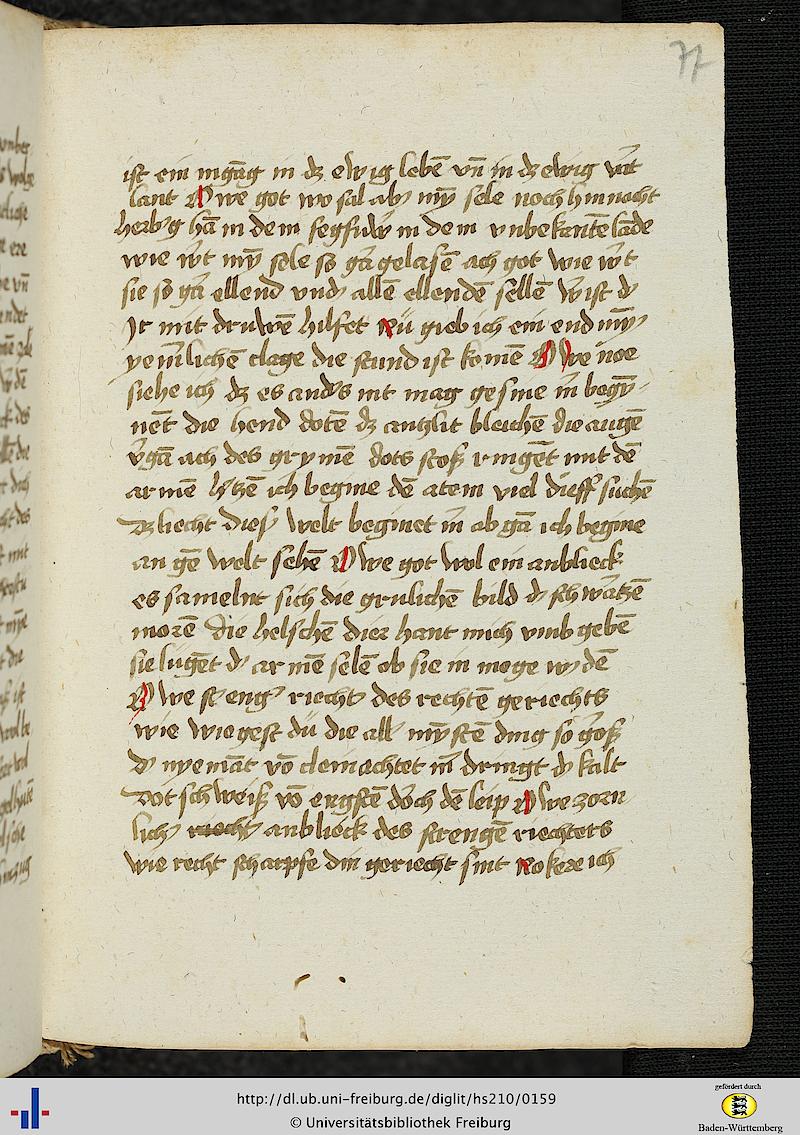 77
ist ein ingāg in dz ewig lebē vn̄ in dz ewig vāt
lant Owe got wo sal ab' mȳ sele noch hinnacht
herb'g hā in dem fegfuw̄r in dem vnbekantē lāde
wie w't mȳ sele so gā gelasēn ach got wie w't
sie so gā ellend vnd' allē ellendē sellē w' ist d'
Ir mit druwē hilfet Nū gieb ich ein end myn'
yem̄lichē clage die stund ist komē Owe noe
siehe ich dz es and's nit mag gesine m̄ begȳ-
nēt die hend dotē dz antzlit bleichē die augē
v'gā ach des grymē dots stoß ringēt mit dē
armē h'tzē ich begine dē atem viel dieff suchē
Dz liecht dies' welt beginet m̄ ab gā ich begine
an gē welt sehē Owe got wol ein anblieck
es samelnt sich die grulichē bild d' schw'atzē
morē die helschē dier hant mich vmb gebē
sie lugēt d' armē selē ob sie in moge w'dē
Owe st'eng' riecht' des rechtē geriechts
wie wiegest dū die all' mȳstē ding so g'oß
d' nyemāt vō cleinachtet m̄ dringt d' kalt
dot schweiß vō engstē doch dē leip Owe zorn
lich' riecht' anblieck des strengē riechters
wie recht scharpfe din geriecht sint No kere ich
http://dl.ub.uni-freiburg.de/diglit/hs210/0159
© Universitätsbibliothek Freiburg
gefördert durch
Baden-Württemberg